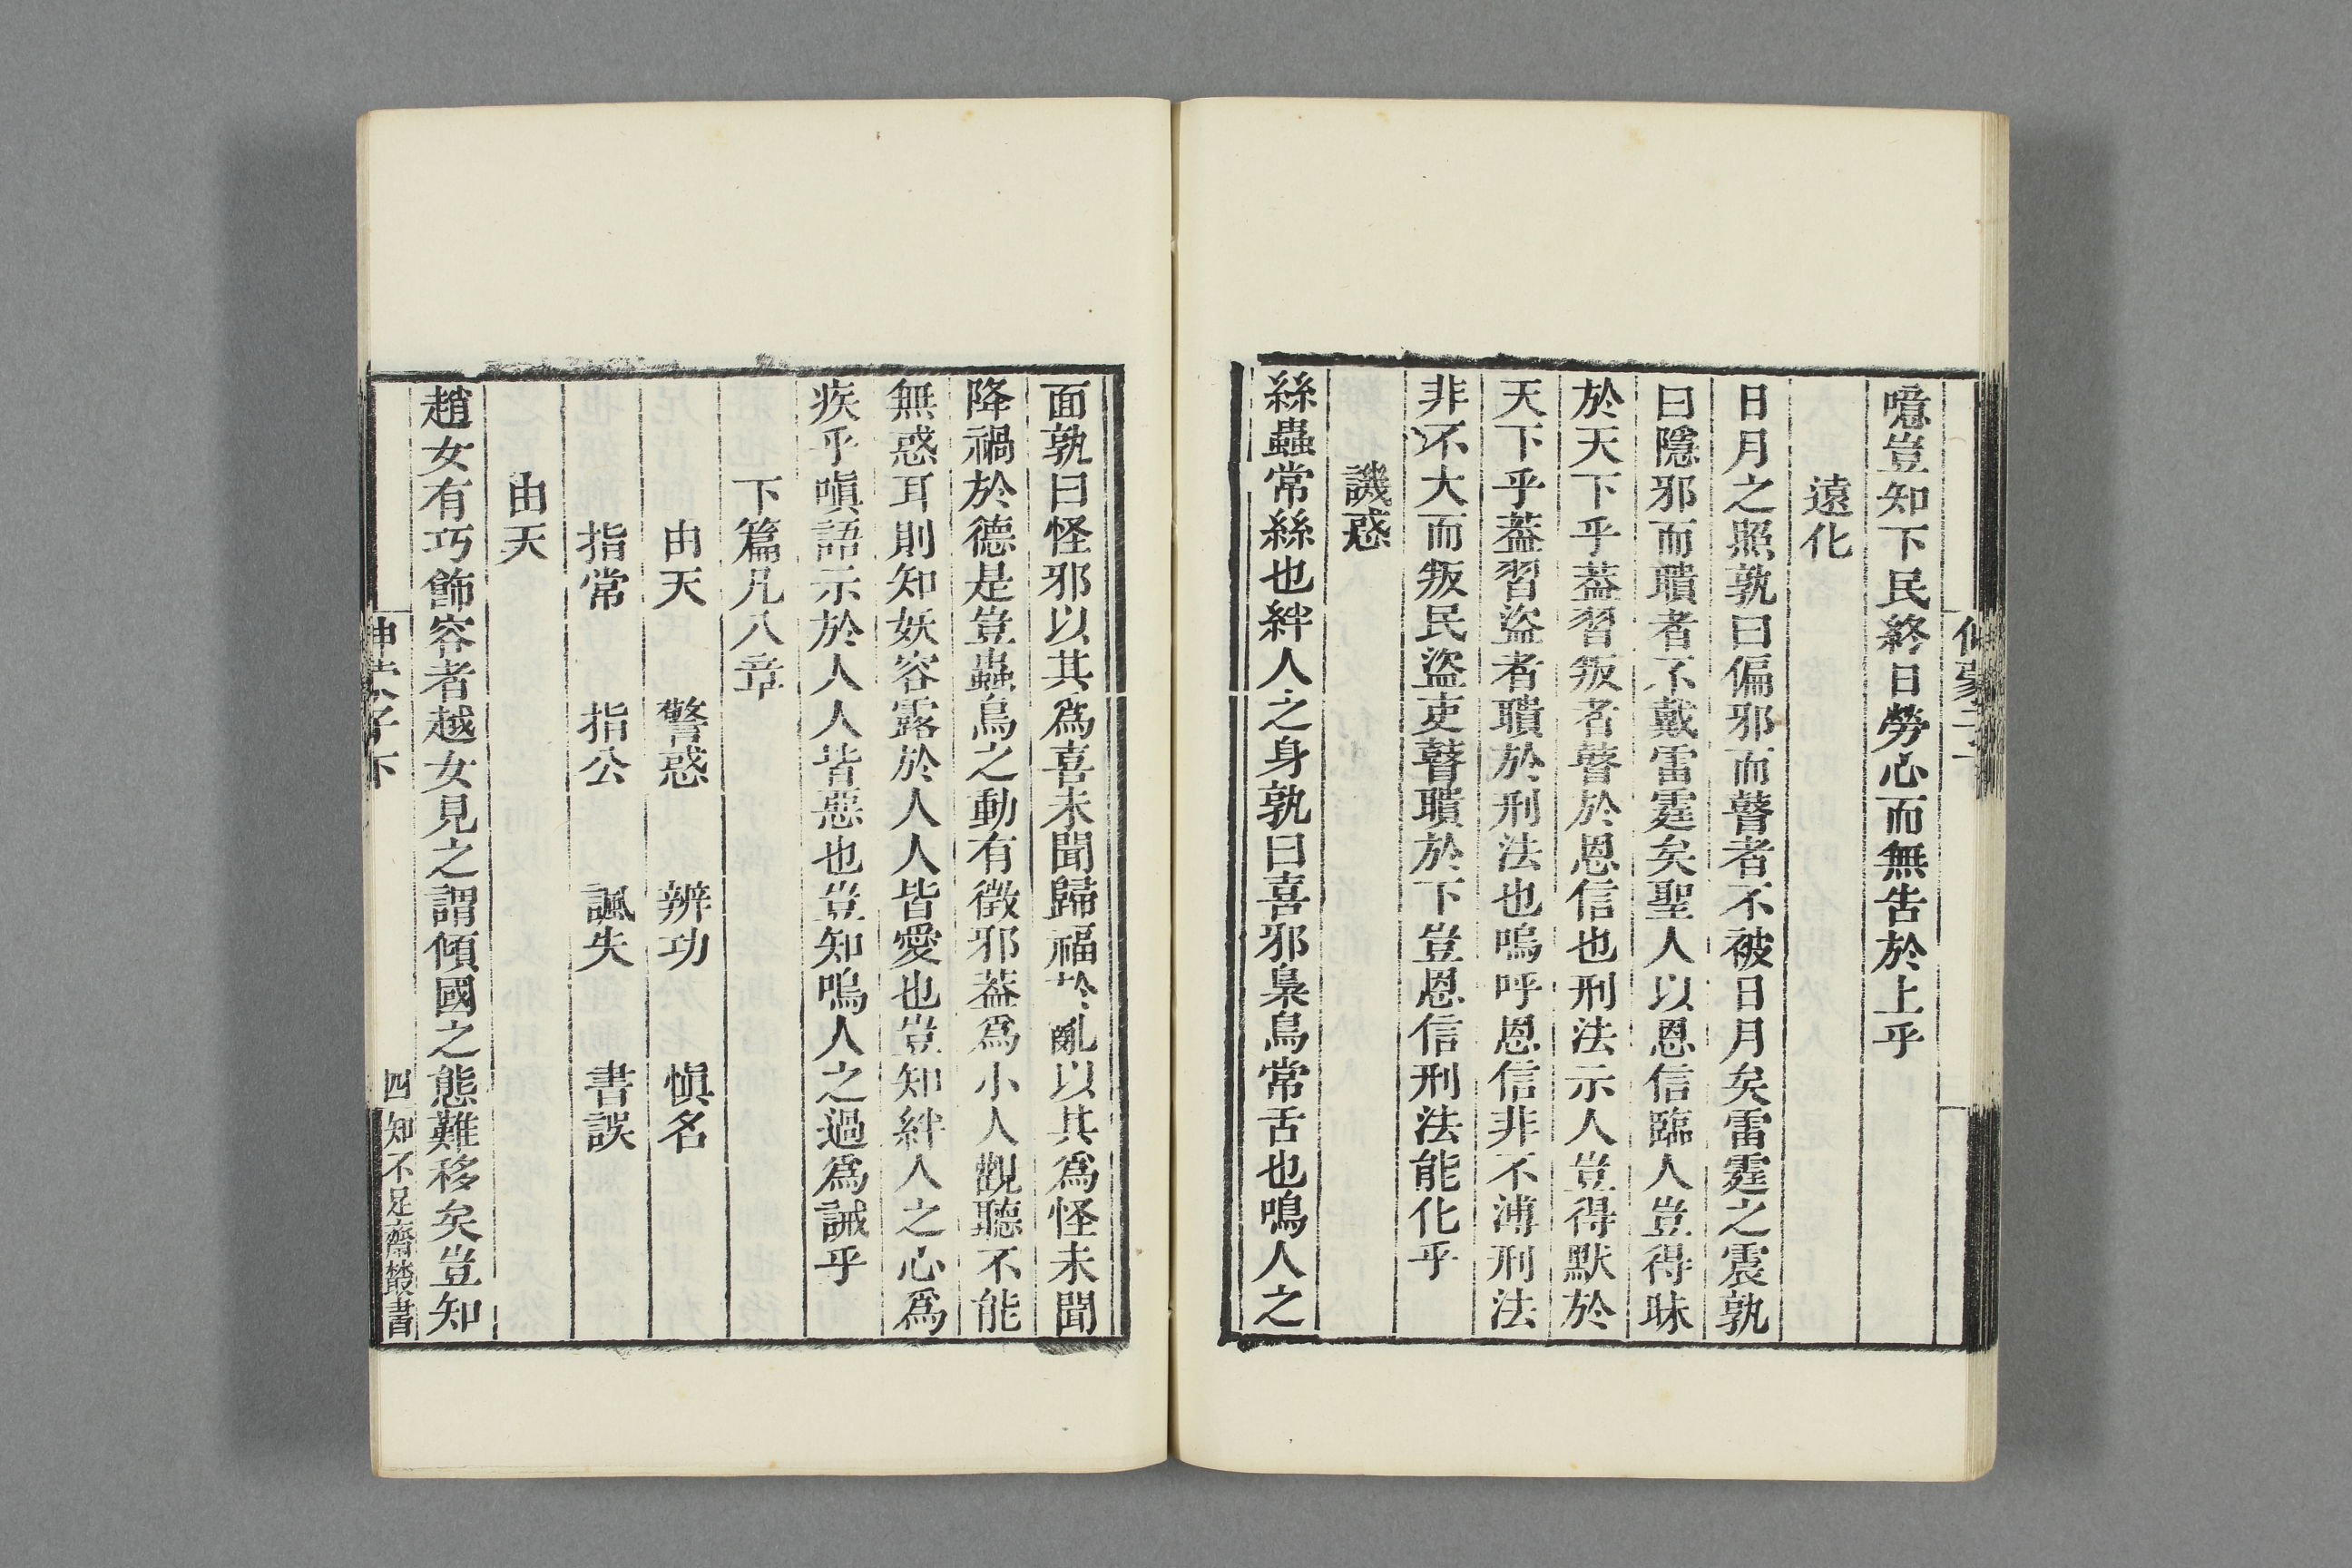 噫豈知下民終日勞心而無告於上乎
遠化
日月之照孰曰偏邪而瞽者不被日月矣雷霆之震孰
曰隱邪而聵者不戴雷霆矣聖人以恩信臨人豈得昧
於天下乎葢習叛者瞽於恩信也刑法示人豈得默於
天下乎葢習盜者聵於刑法也嗚呼恩信非不溥刑法
非不大而叛民盜吏瞽聵於下豈恩信刑法能化乎
譏惑
絲蟲常絲也絆人之身孰曰喜邪梟鳥常舌也鳴人之
面孰曰怪邪以其爲喜未聞歸福於亂以其爲怪未聞
降禍於德是豈蟲鳥之動有徵邪葢爲小人觀聽不能
無惑耳則知妖容露於人人皆愛也豈知絆人之心爲
疾乎嗔語示於人人皆惡也豈知鳴人之過爲誡乎
下篇凡八章
由天 警惑 辨功 愼名
指常 指公 諷失 書誤
由天
趙女有巧飾容者越女見之謂傾國之態難移矣豈知
子下 四 知不足齋叢書